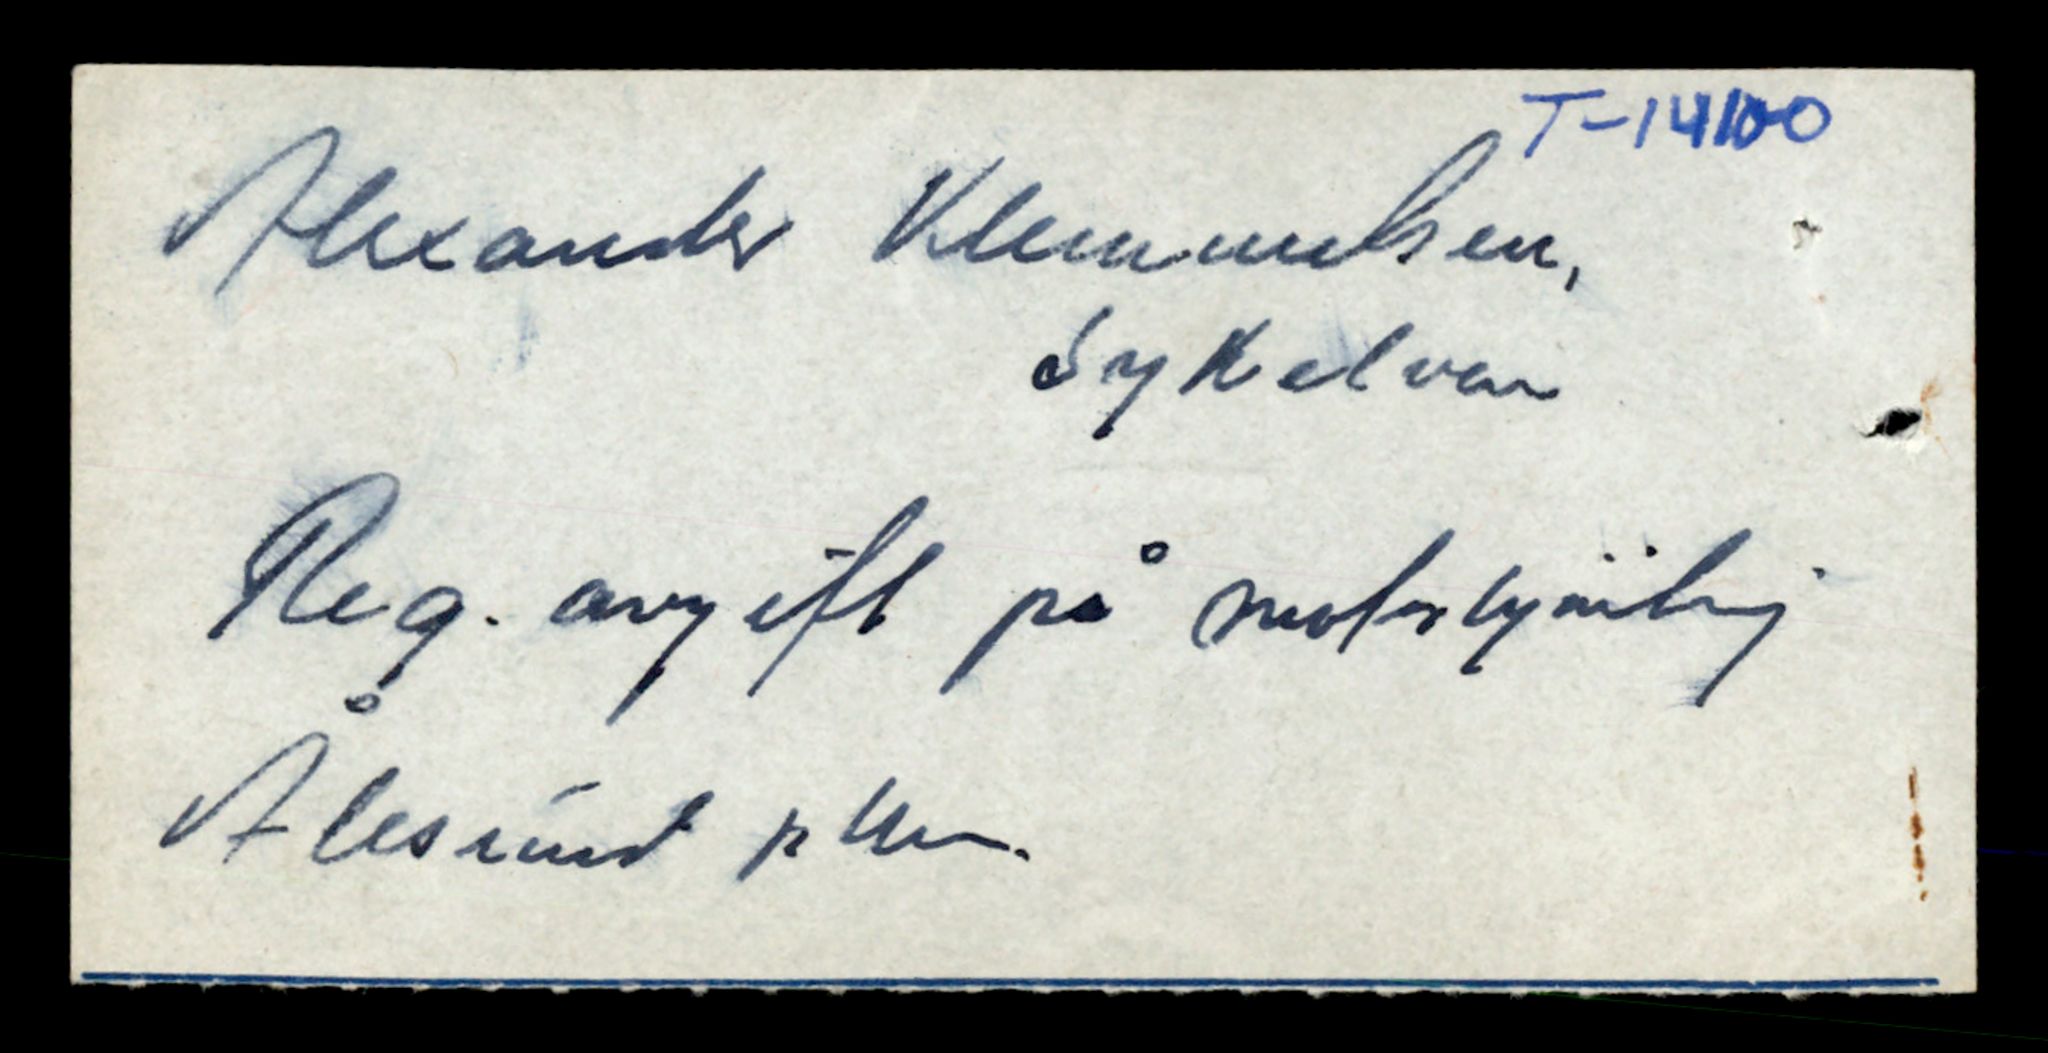 T-14100
Alexander Klemmetsen,
Sykelven
Reg. avgift på motorkjøretøy
Ålesund pkm.